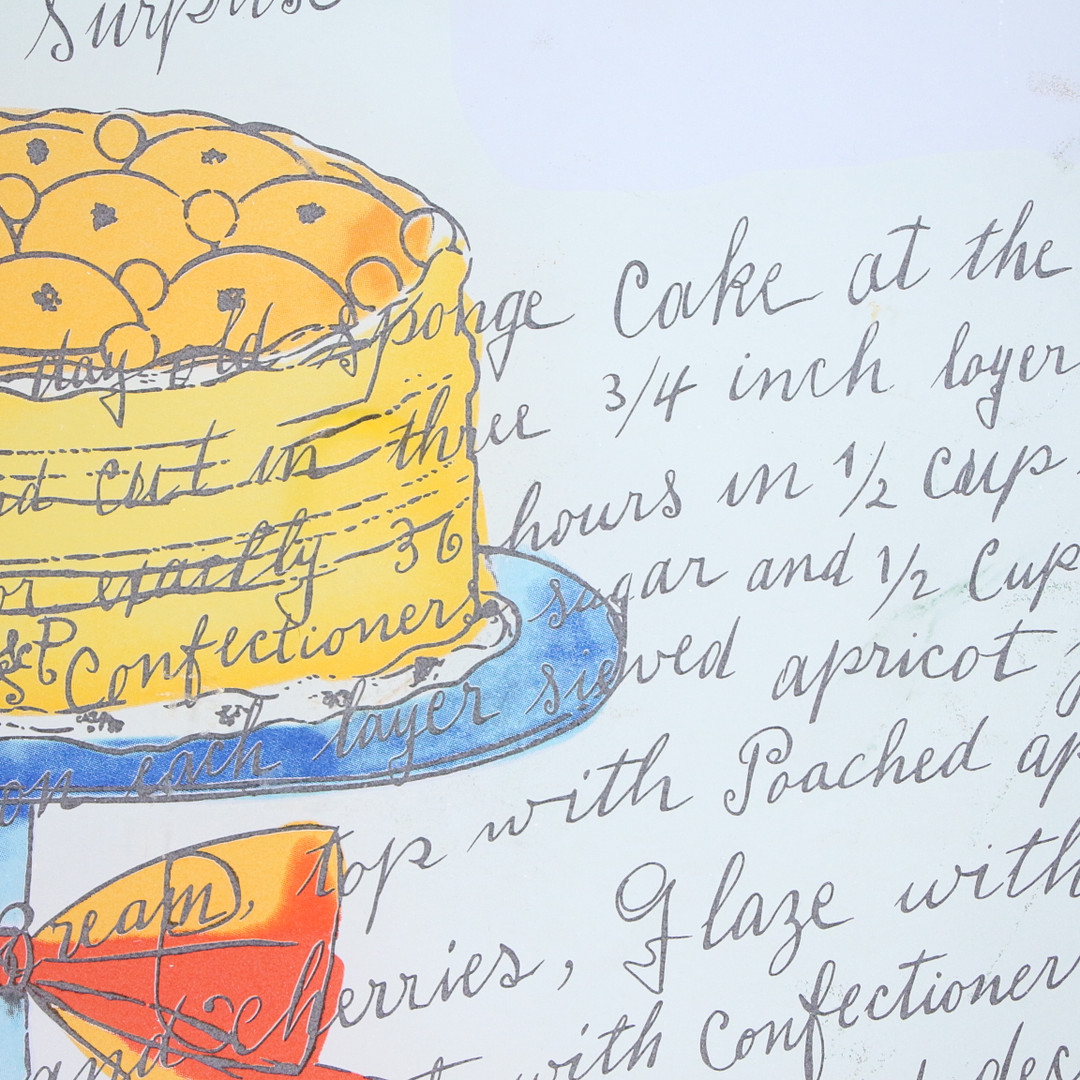 Surprise
day old Sponge Cake at the
cut in three 3/4 inch layer
or exactly 36 hours in 1/2 cup
Confectioners sugar and 1/2 Cup
on each layer sieved apricot
Cream, top with Poached ap
and cherries, Glaze with
with Confectioner
des